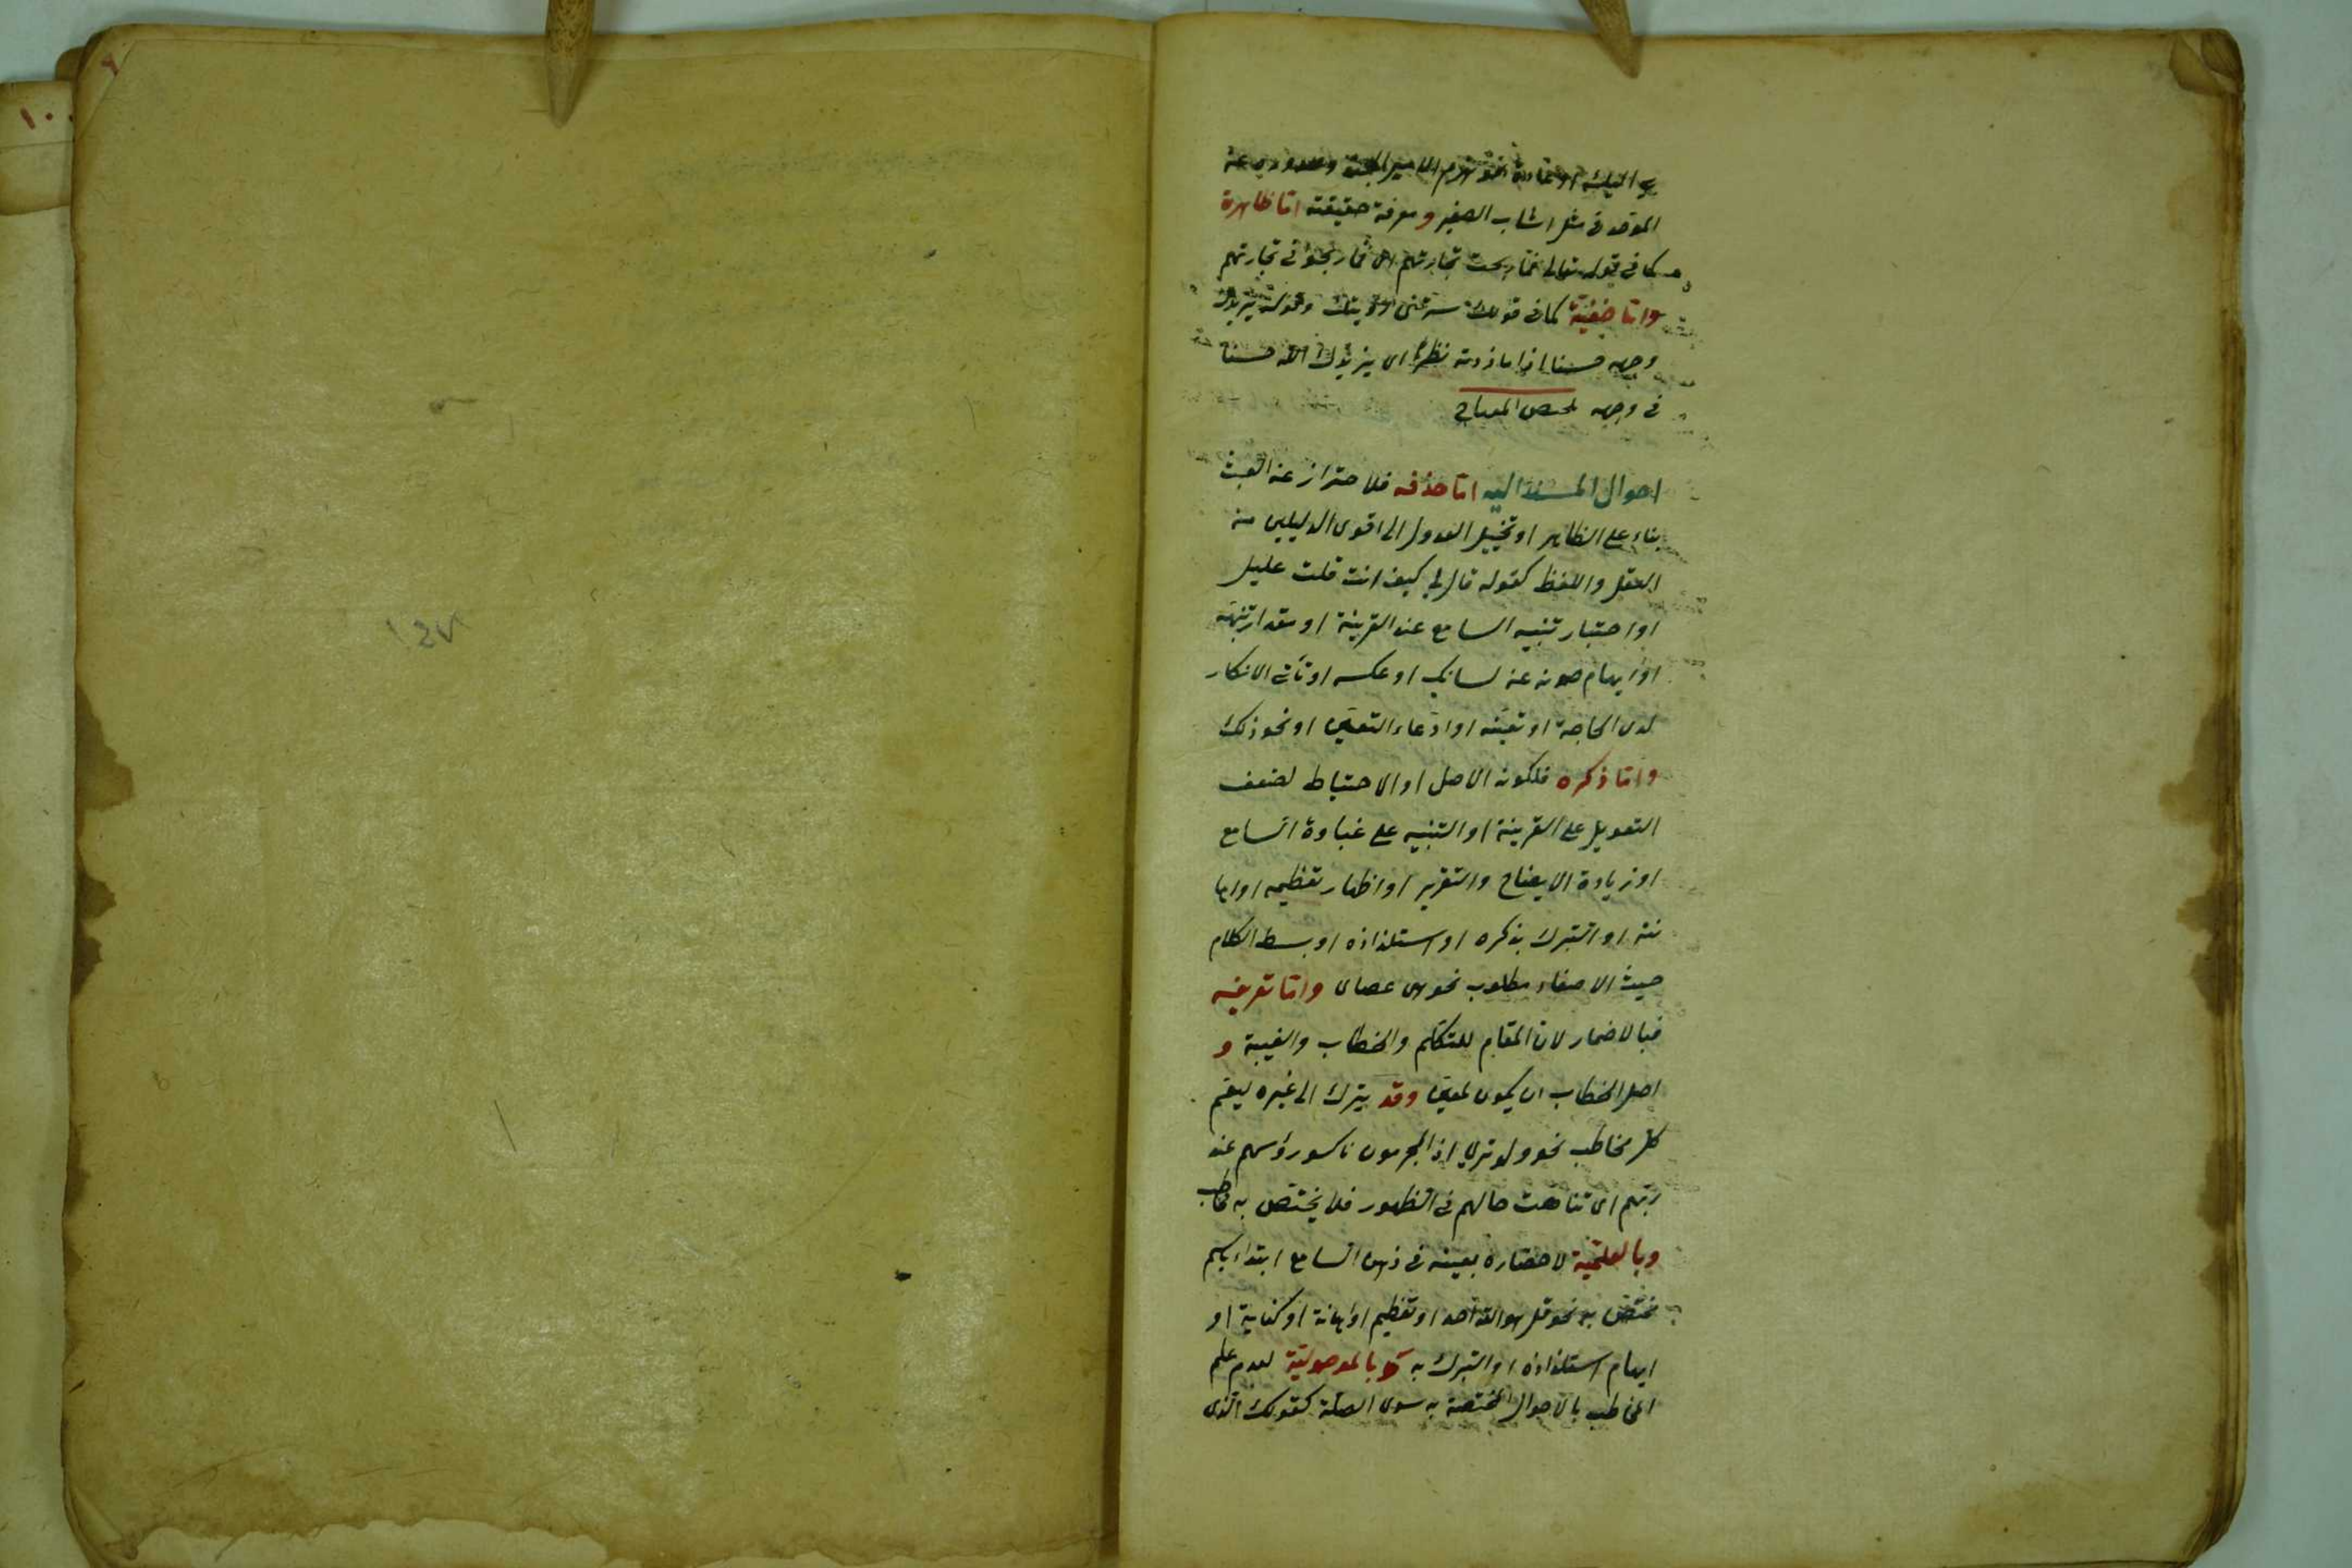 بي اليك او عادة نحو هزم الامير الجند وصدوره عن
الموحد في مثل اشاب الصغير و معرفة حقيقته اما ظاهرة
كما في قوله تعالى فما ربحت تجارتهم اى فما ربحوا في تجارتهم
واما خفية كما في قولك سرتنى رؤيتك وقوله يزيدك
وجهه حسنا اذا ما زدته نظرا اى يزيدك الله حسنا
في وجهه
احوال المسند اليه اما حذفه فللاحتراز عن العبث
بناء على الظاهر او تخييل العدول الى اقوى الدليلين من
العقل واللفظ كقوله قال لي كيف انت قلت عليل
او اختبار تنبه السامع عند القرينة او مقدار تنبهه
او ايهام صونه عن لسانك او عكسه او تأتى الانكار
لدى الحاجة او تعينه او ادعاء التعين او نحو ذلك
واما ذكره فلكونه الاصل او الاحتياط لضعف
التعويل على القرينة او التنبيه على غباوة السامع
او زيادة الايضاح والتقرير او اظهار تعظيمه او اها
نته او التبرك بذكره او استلذاذه او بسط الكلام
حيث الاصغاء مطلوب نحو هى عصاى واما تعريفه
فبالاضمار لان المقام للتكلم والخطاب والغيبة و
اصل الخطاب ان يكون لمعين وقد يترك الى غيره ليعم
كل مخاطب نحو ولو ترى اذ المجرمون ناكسو رؤسهم عند
ربهم اى تناهت حالهم في الظهور فلا يختص به مخاطب
وبالعلمية لاحضاره بعينه في ذهن السامع ابتداء باسم
مختص به نحو قل هو الله احد او تعظيم او اهانة او كناية او
ايهام استلذاذه او التبرك به وبالموصولية لعدم علم
المخاطب بالاحوال المختصة به سوى الصلة كقولك الذى
٦
١٠